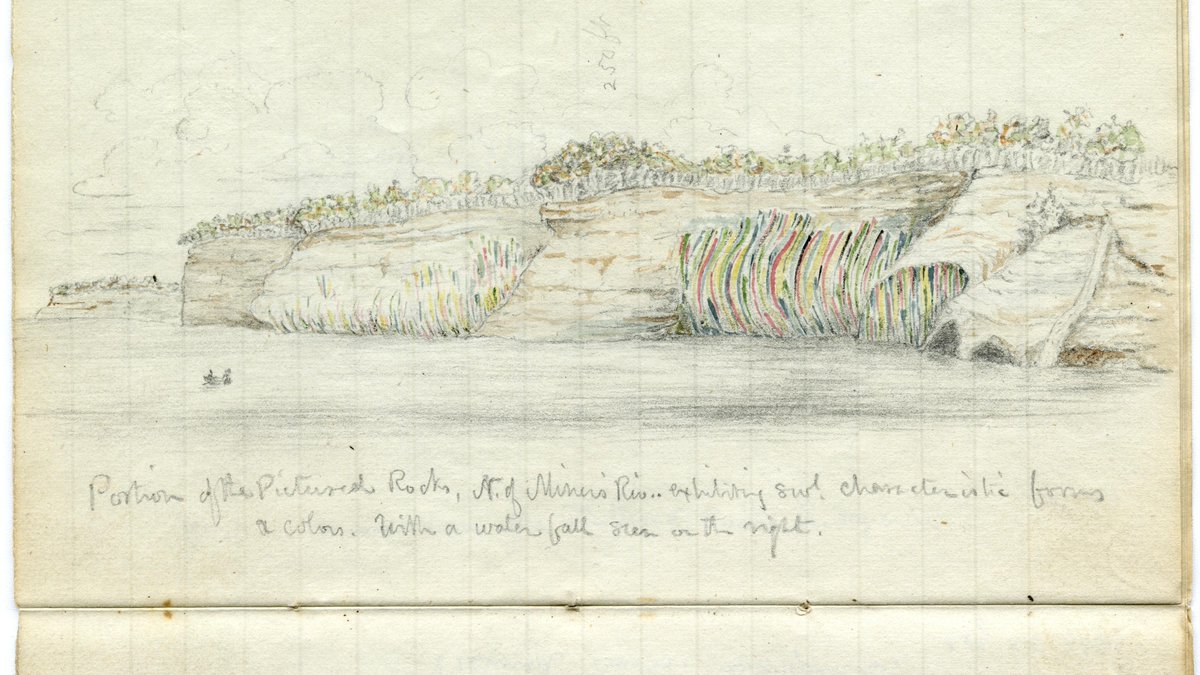 250 ft
Portion of the Pictured Rocks, N. of Miner's Riv.. exhibiting sevl. characteristic forms
& colors. With a water fall seen on the right.